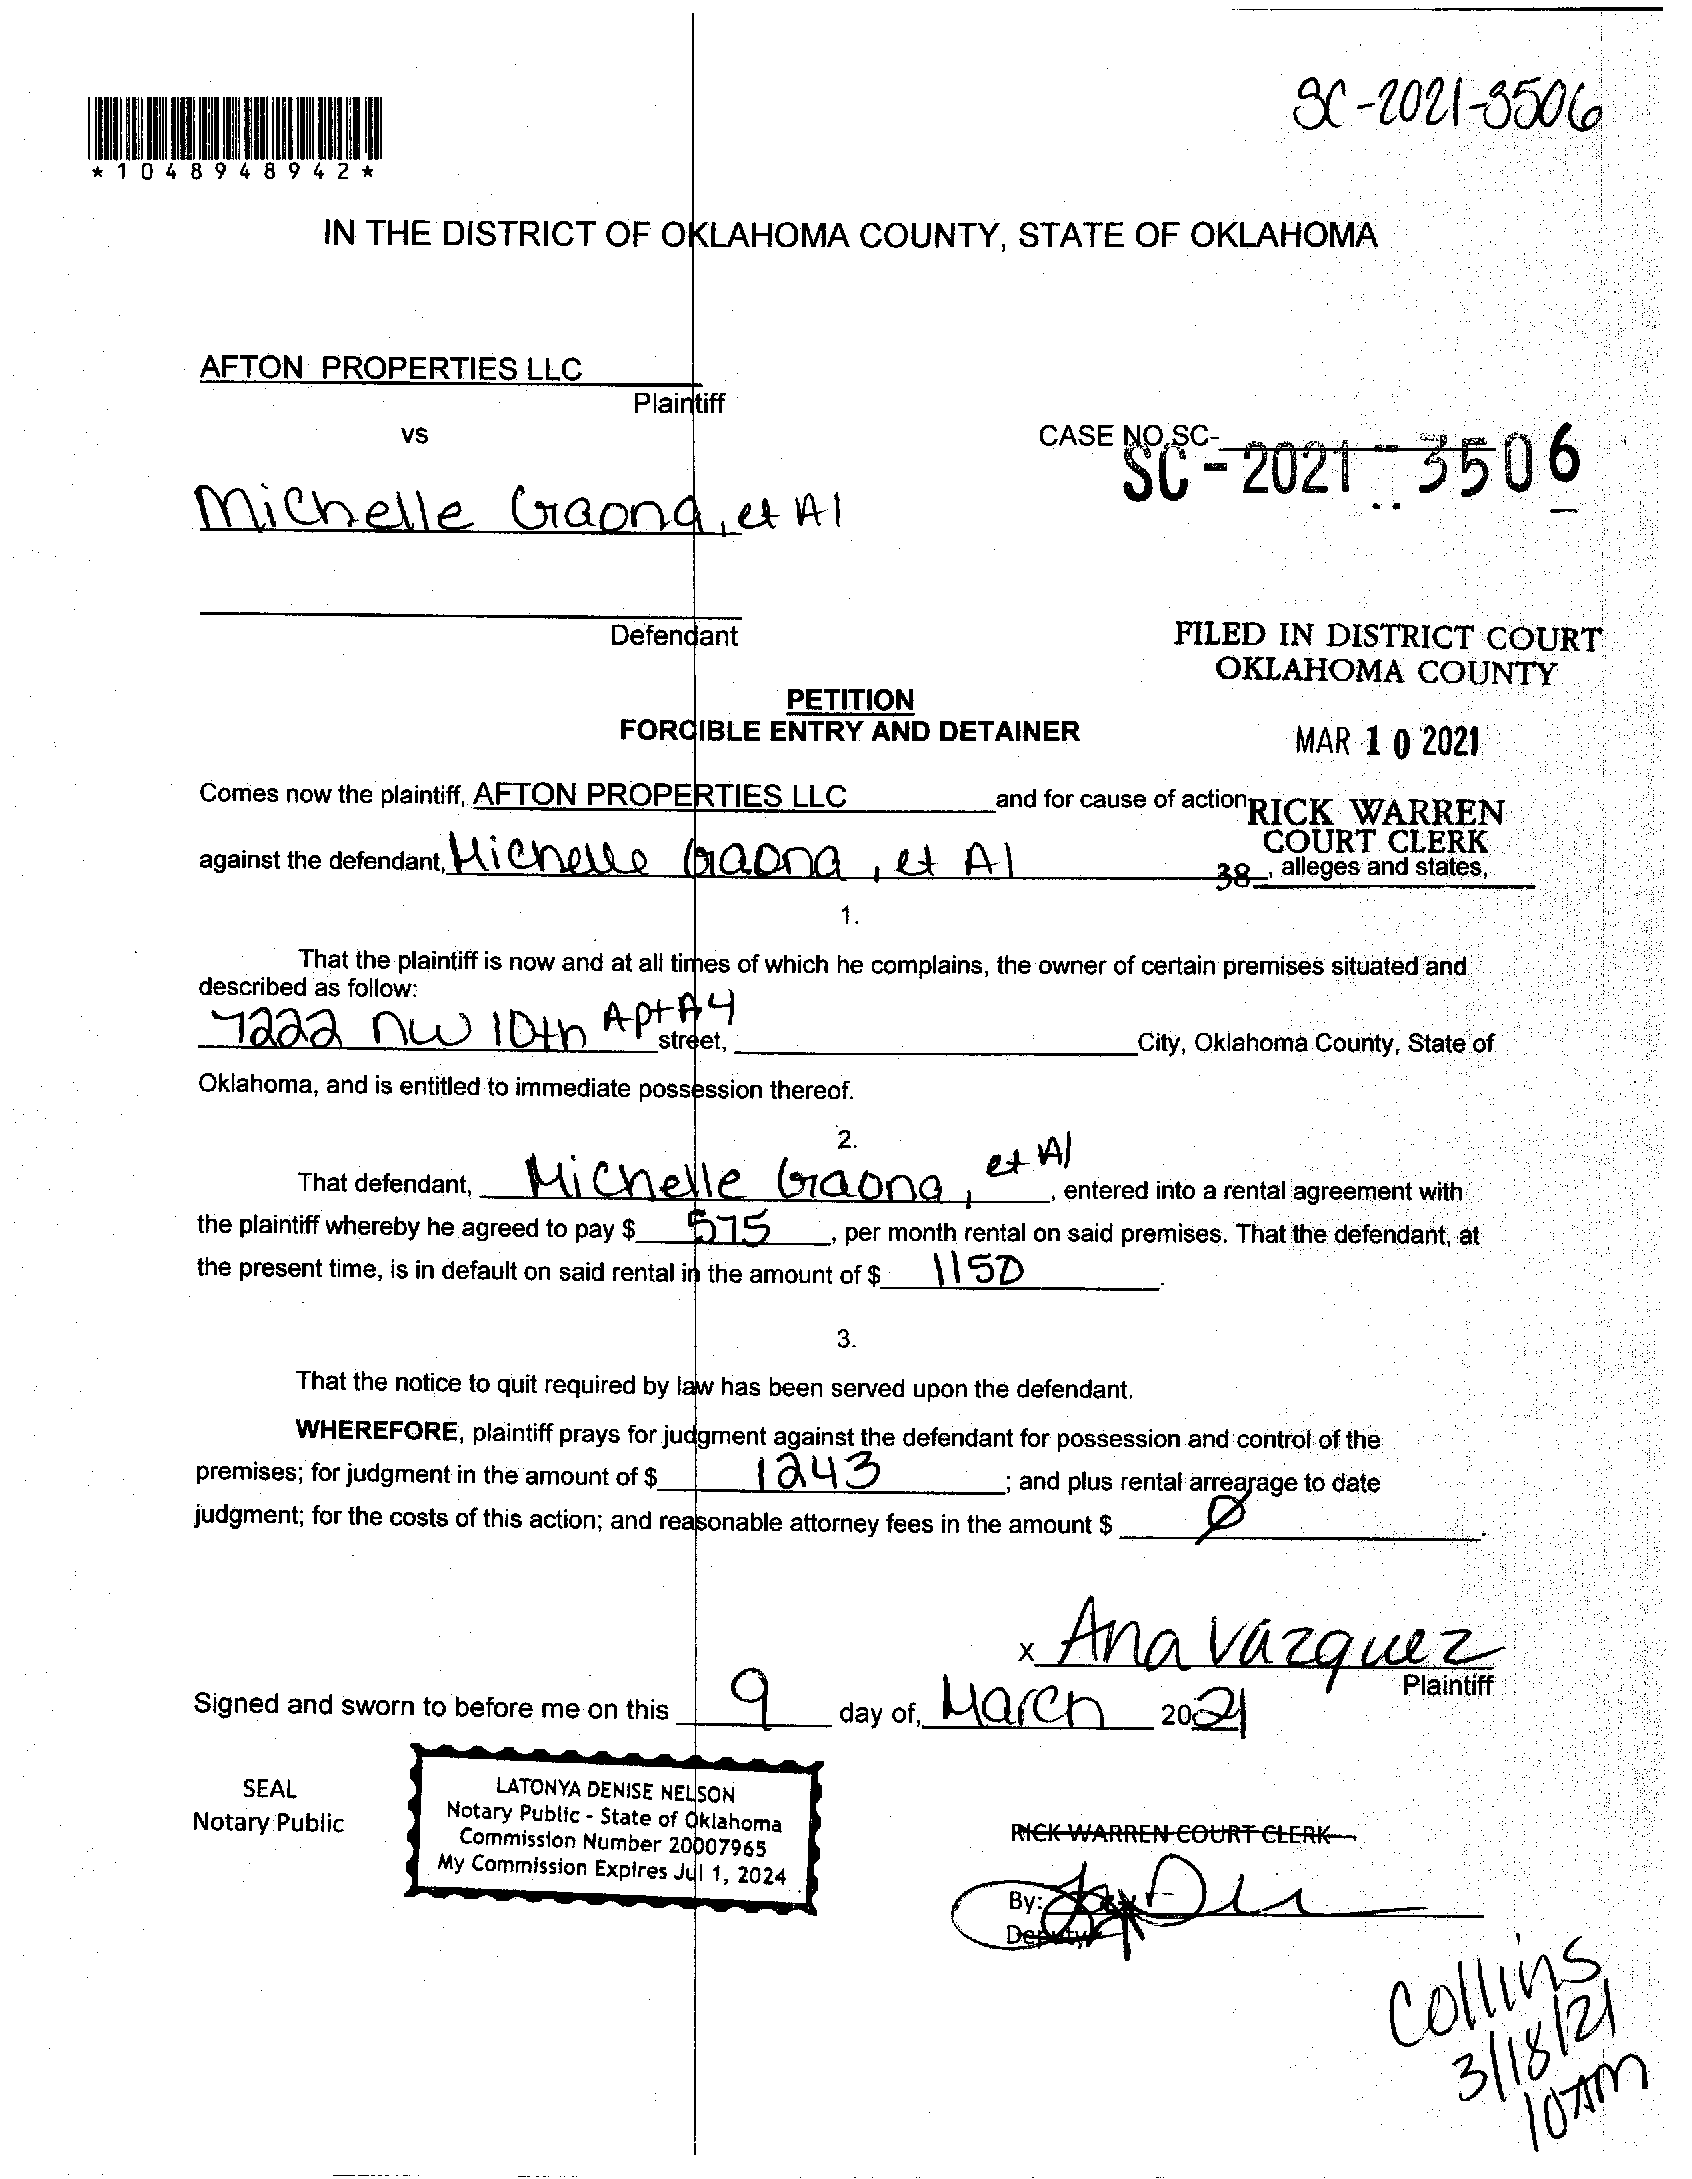 SC-2021-3506
*1048948942*
IN THE DISTRICT OF OKLAHOMA COUNTY, STATE OF OKLAHOMA
AFTON PROPERTIES LLC
Plaintiff
vs
CASE NO.SC-
SC-2021-3506
Michelle Gaona, et Al
Defendant
FILED IN DISTRICT COURT
OKLAHOMA COUNTY
PETITION
FORCIBLE ENTRY AND DETAINER
MAR 10 2021
Comes now the plaintiff, AFTON PROPERTIES LLC and for cause of action
RICK WARREN
COURT CLERK
against the defendant, Michelle Gaona, et Al 38 , alleges and states,
1.
That the plaintiff is now and at all times of which he complains, the owner of certain premises situated and
described as follow:
7222 NW 10th Apt A4 street, City, Oklahoma County, State of
Oklahoma, and is entitled to immediate possession thereof.
2.
That defendant, Michelle Gaona, et Al , entered into a rental agreement with
the plaintiff whereby he agreed to pay $ 575 , per month rental on said premises. That the defendant, at
the present time, is in default on said rental in the amount of $ 1150 .
3.
That the notice to quit required by law has been served upon the defendant.
WHEREFORE, plaintiff prays for judgment against the defendant for possession and control of the
premises; for judgment in the amount of $ 1243 ; and plus rental arrearage to date
judgment; for the costs of this action; and reasonable attorney fees in the amount $ Ø .
x Ana Vazquez
Plaintiff
Signed and sworn to before me on this 9 day of, March 2021
SEAL
Notary Public
LATONYA DENISE NELSON
Notary Public - State of Oklahoma
Commission Number 20007965
My Commission Expires Jul 1, 2024
RICK WARREN COURT CLERK
By:
Deputy
Collins
3/18/21
10AM